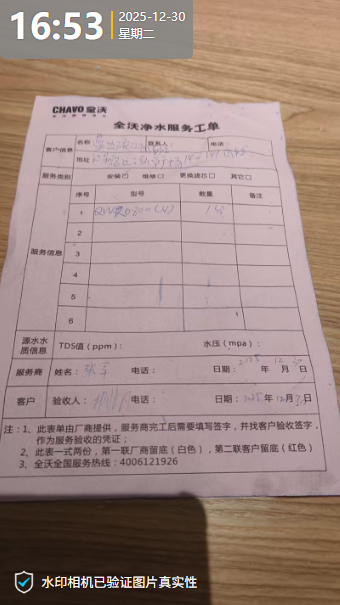 16:53
2025-12-30
星期二
CHAVO 全沃
全沃净水服务工单
客户信息
名称
联系人
电话
地址
服务类别
安装☑ 维修□ 更换滤芯□ 其它□
服务信息
序号 型号 数量 备注
1
2
3
4
5
6
源水水质信息
TDS值（ppm）：
水压（mpa）：
服务商 姓名： 电话： 日期：2025年12月30日
客户 验收人： 电话： 日期：2025年12月30日
注：1、此表单由厂商提供，服务商完工后需要填写签字，并找客户验收签字，
作为服务验收的凭证；
2、此表一式两份，第一联厂商留底（白色），第二联客户留底（红色）
3、全沃全国服务热线：4006121926
水印相机已验证图片真实性